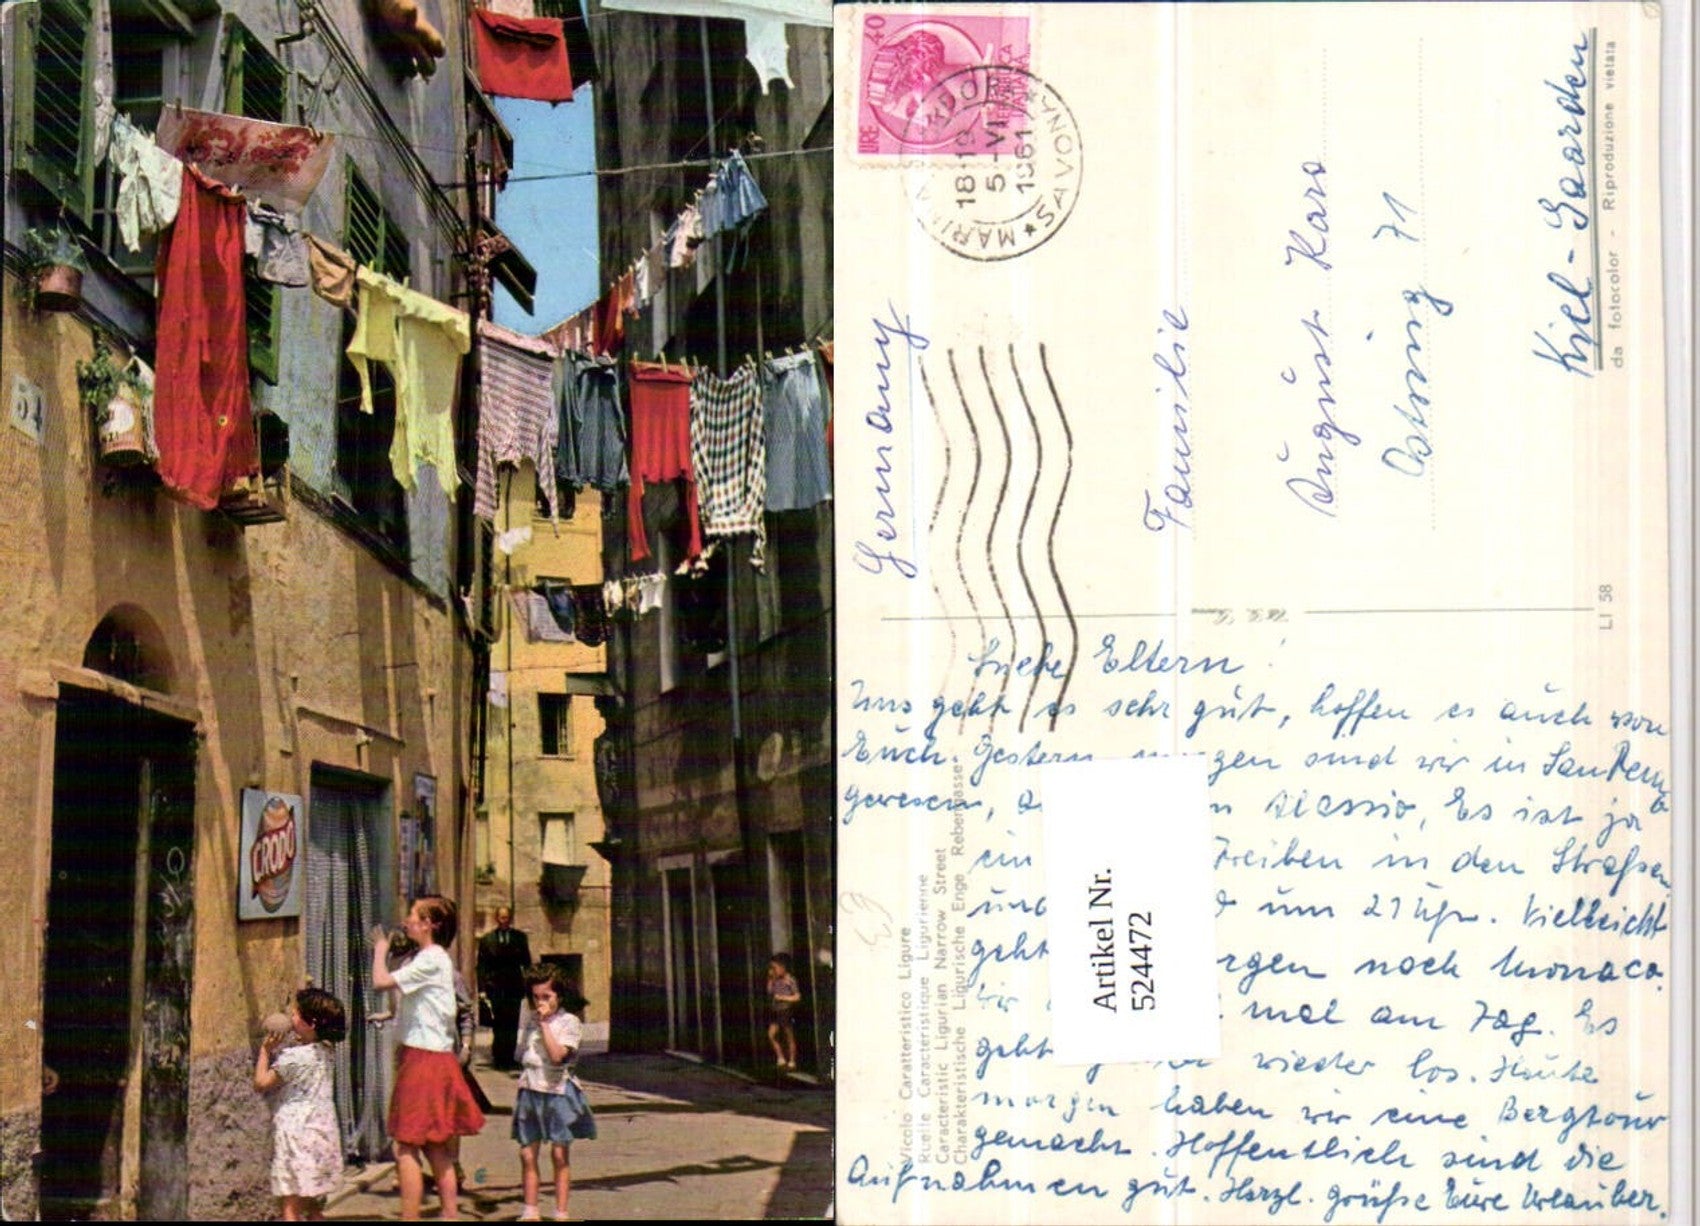 54
CRODO
40
LIRE
REPUBBLICA
ITALIANA
18-19
5-VI
1961
MARINA
* SAVONA *
Germany
Familie
August Karo
Ostring 71
Kiel-Gaarden
da fotocolor - Riproduzione vietata
LI 58
Vicolo Caratteristico Ligure
Ruelle Caractéristique Ligurienne
Characteristic Ligurian Narrow Street
Charakteristische Ligurische Enge Rebengasse
Artikel Nr.
524472
Liebe Eltern!
Uns geht es sehr gut, hoffen es auch von
Euch Gestern sind wir in San Remo
gewesen, Alassio, Es ist ja
ein Treiben in den Straßen
und um 21 Uhr. Vielleicht
geht noch Monaco.
Wir mal am Tag. Es
geht wieder los. Heute
morgen haben wir eine Bergtour
gemacht. Hoffentlich sind die
Aufnahmen gut. Herzl. Grüße Eure Urlauber.